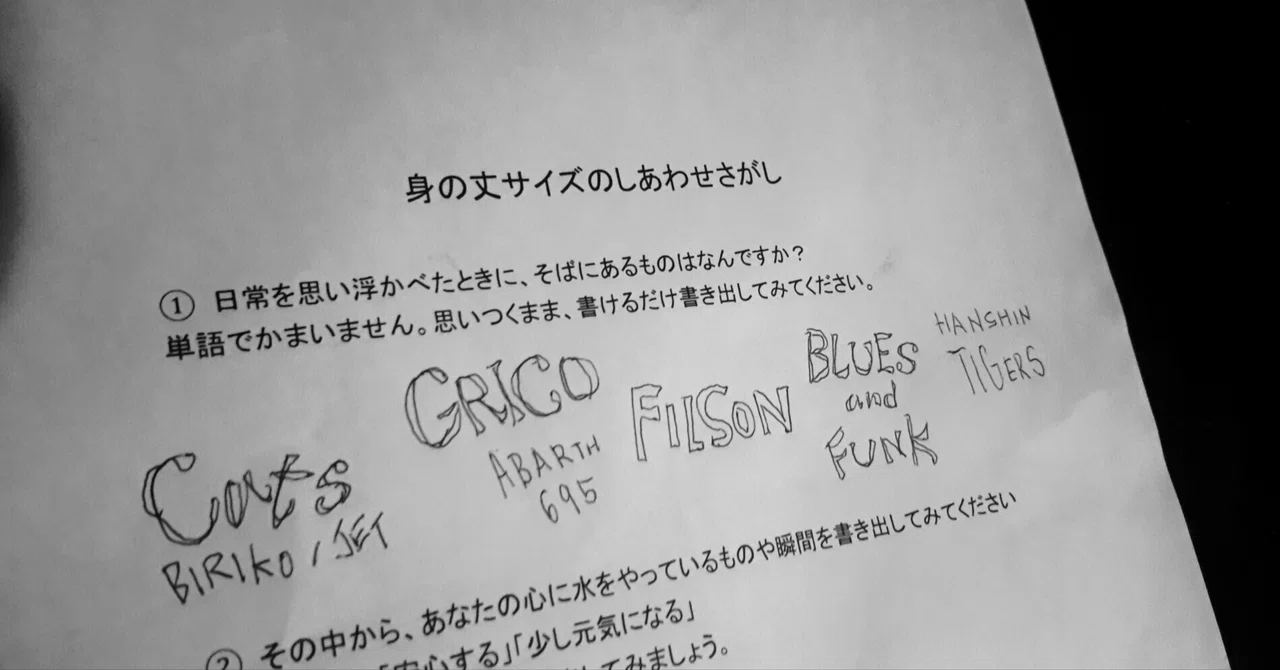 身の丈サイズのしあわせさがし
① 日常を思い浮かべたときに、そばにあるものはなんですか？
単語でかまいません。思いつくまま、書けるだけ書き出してみてください。
Cats
BIRIKO / JET
GRICO
ABARTH
695
FILSON
BLUES
and
FUNK
HANSHIN
TIGERS
② その中から、あなたの心に水をやっているものや瞬間を書き出してみてください
「安心する」「少し元気になる」
てみましょう。